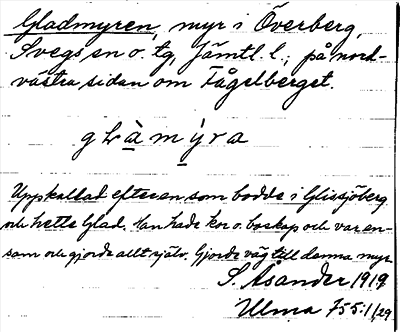 Gladmyren, myr i Överberg,
Svegs sn o. tg, Jämtl. l.; på nord-
västra sidan om Fågelberget.
glàmýra
Uppkallad efter en som bodde i Glissjöberg
och hette Glad. Han hade kor o. boskap och var en-
sam och gjorde allt själv. Gjorde väg till denna myr
S. Åsander 1919
Ulma 755:1/29